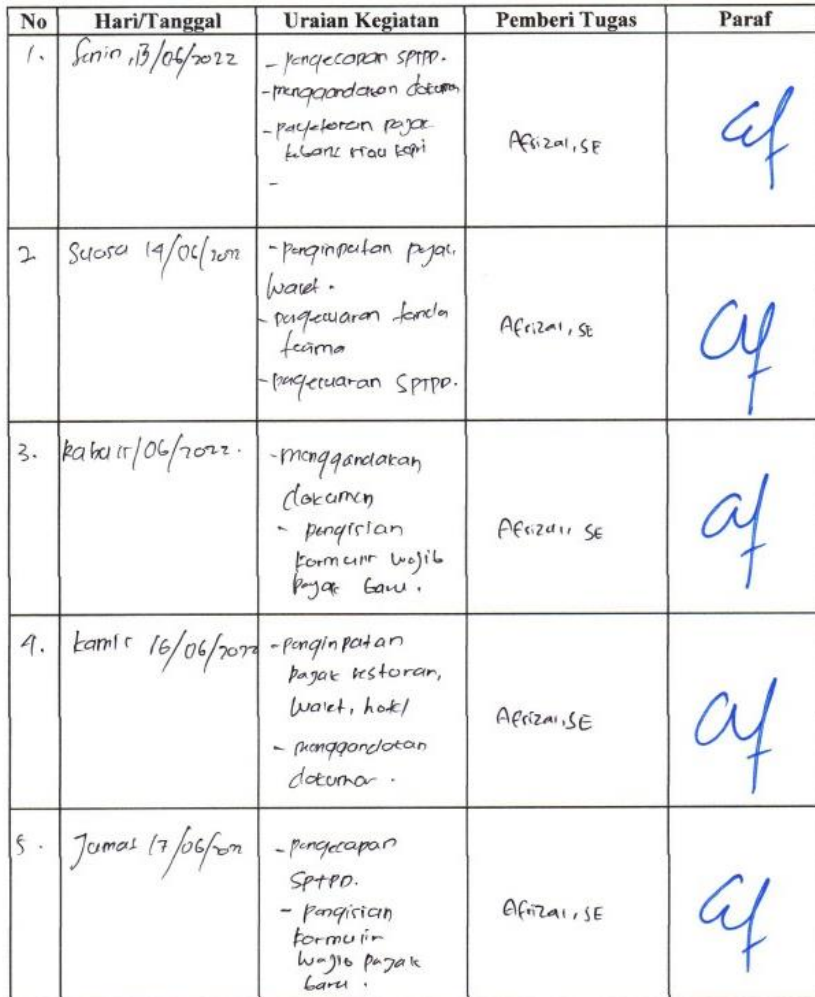 No Hari/Tanggal Uraian Kegiatan Pemberi Tugas Paraf
1. Senin, 13/06/2022
- pengecapan SPTPD.
- menggandakan dokumen
- pajak
riau kepri
-
Afrizal, SE
2 Selasa 14/06/2022
- penginputan pajak
walet.
- pengeluaran tanda
terima
- pengeluaran SPTPD.
Afrizal, SE
3. Rabu 15/06/2022.
- menggandakan
dokumen
- pengisian
formulir wajib
pajak baru.
Afrizal, SE
4. Kamis 16/06/2022
- penginputan
pajak restoran,
walet, hotel
- menggandakan
dokumen.
Afrizal, SE
5. Jumat 17/06/2022
- pengecapan
SPTPD.
- pengisian
formulir
wajib pajak
baru.
Afrizal, SE